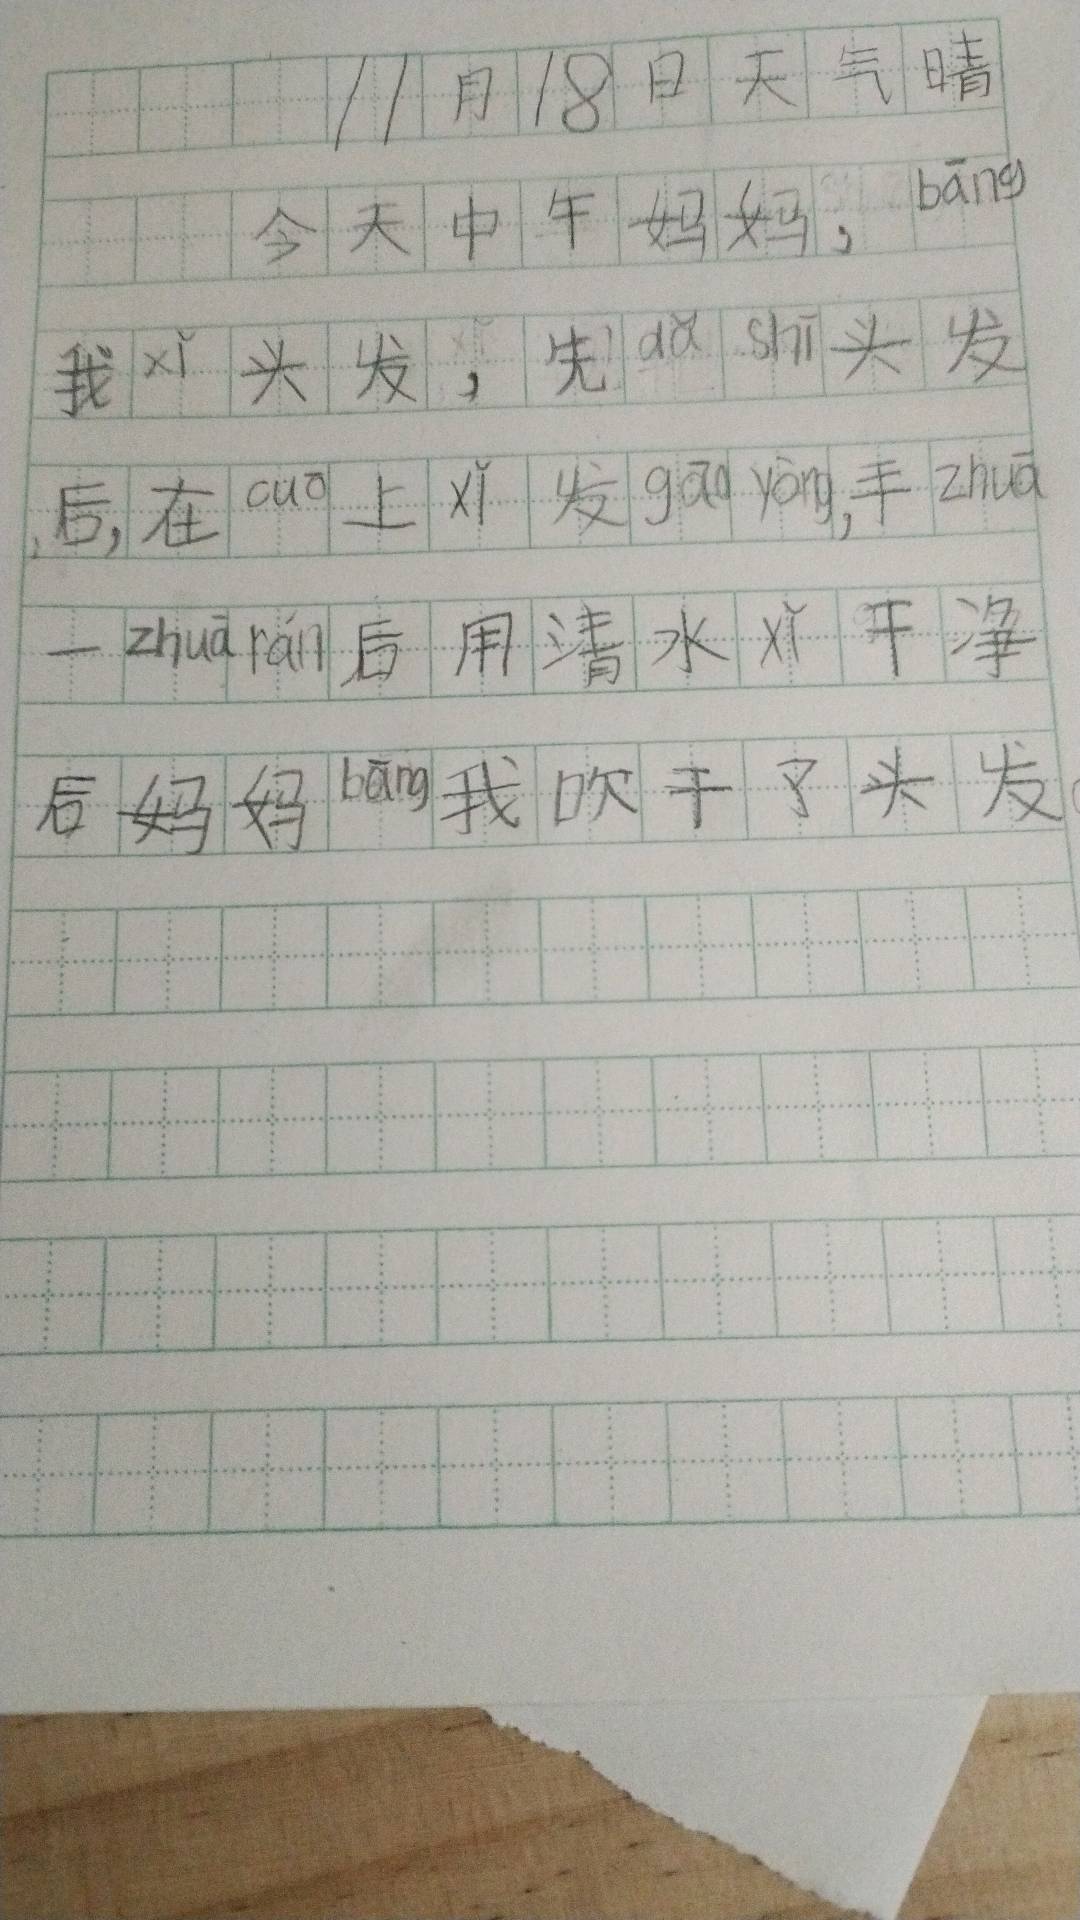 11月18日天气晴
今天中午妈妈，bāng
我xǐ头发，先dǎ shī头发
后，在cuō上xǐ发gāo yòng，手zhuā
一zhuā rán后用清水xǐ干净
后妈妈bāng我吹干了头发。